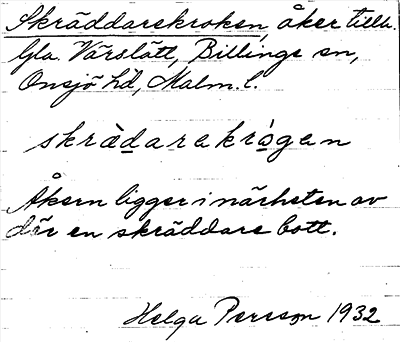 Skräddarekroken, åker tillh.
Gla. Värslätt, Billinge sn,
Onsjö hd, Malm. l.
skrädarekrogen
Åkern ligger i närheten av
där en skräddare bott.
Helga Persson 1932